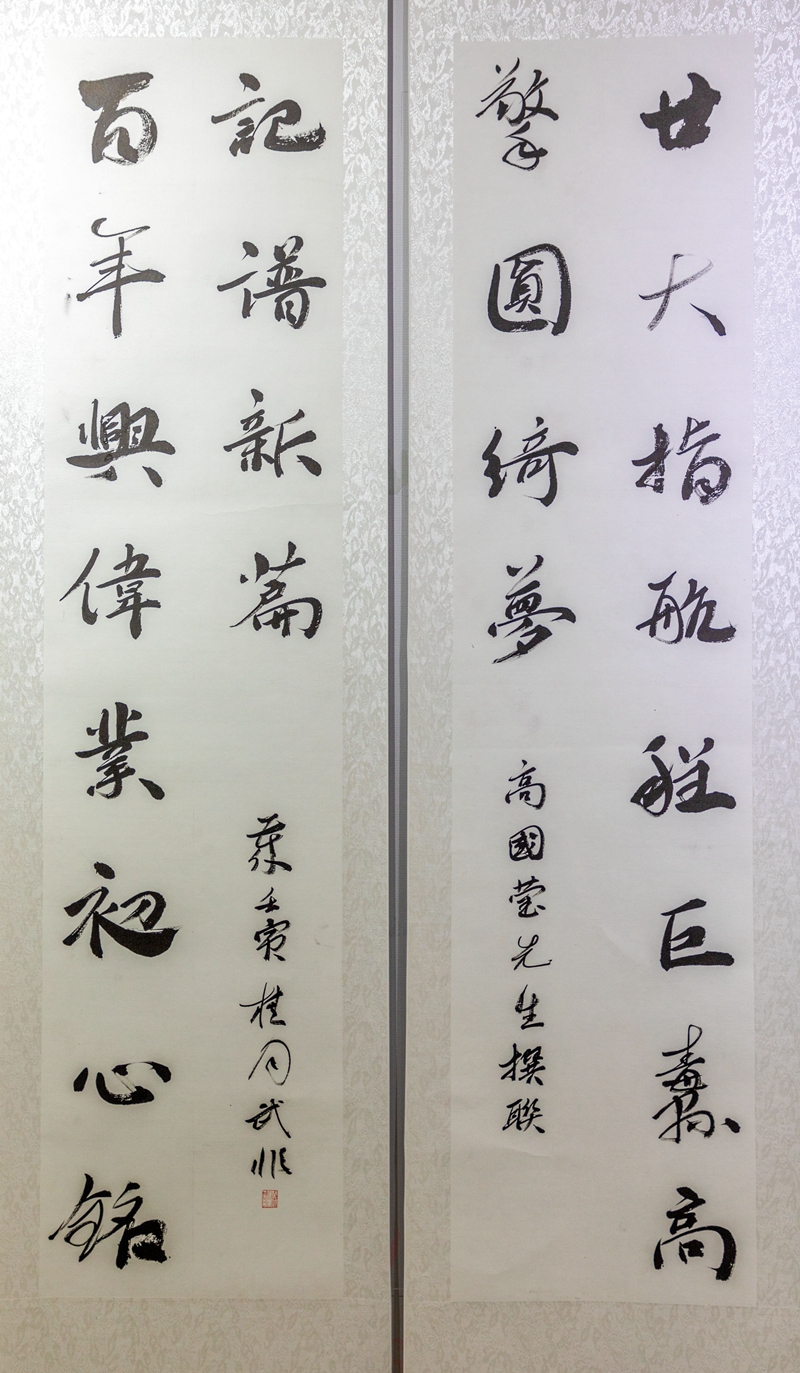 廿大指航程巨纛高
擎圓綺夢
高國瑩先生撰聯
百年興偉業初心銘
記譜新篇
歲壬寅桂月武